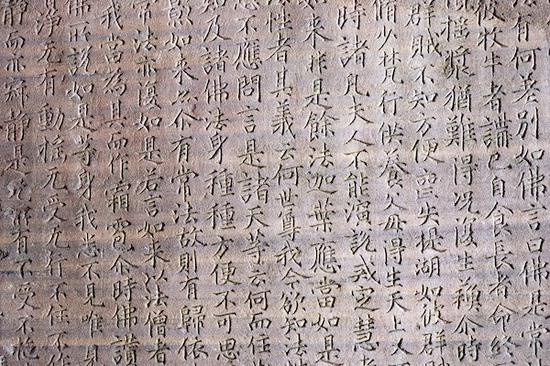 有何差別如佛言曰佛是常
牧牛者搆已自食長者命終
搖漿猶難得況復生蘇尒時
群賊不知方便皿失提湖如彼群賊
脩少梵行供養父母得生天上
時諸凡夫人不能演說戒定慧
來非是餘法迦葉應當如是
性者其義云何世尊我今欲知法
不應問言是諸天等云何而住
如及諸佛法身種種方便不可思
如來尒有常法故則有歸依
常法亦復如是若言如來法僧者
我當為其而作霜雹尒時佛讚
佛所說如見等身我悉不見唯身
淨无有動搖无受无行不住不作
靜而寂靜是有不受不施